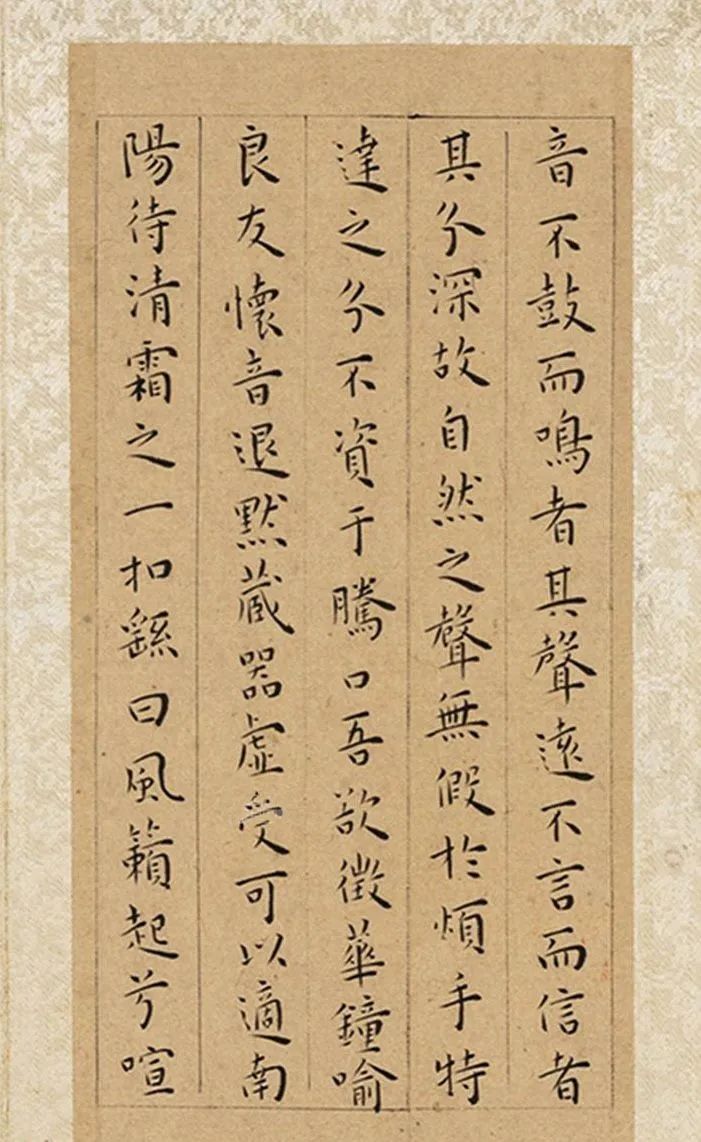 音不鼓而鳴者其聲遠不言而信者
其分深故自然之聲無假於煩手特
達之分不資于騰口吾欲徵華鐘喻
良友懷音退默蔵器虛受可以適南
陽待清霜之一扣繇曰風籟起兮喧